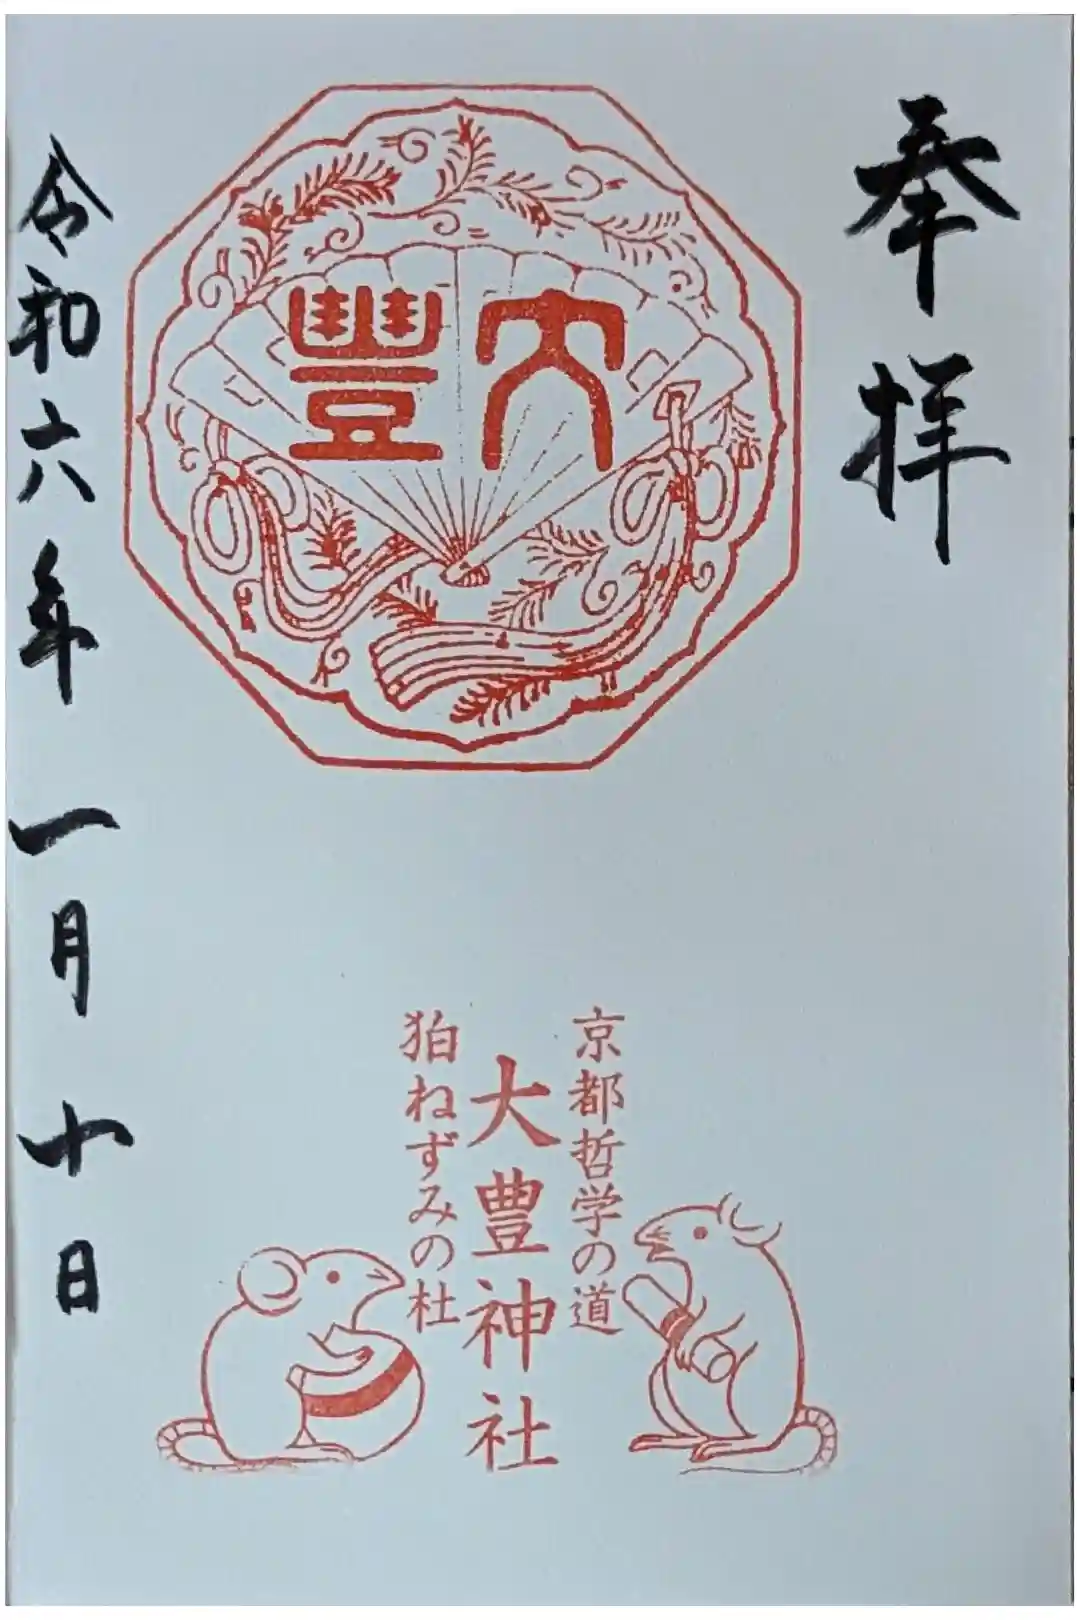 奉拝
大豐
京都哲学の道
大豊神社
狛ねずみの杜
令和六年一月十日